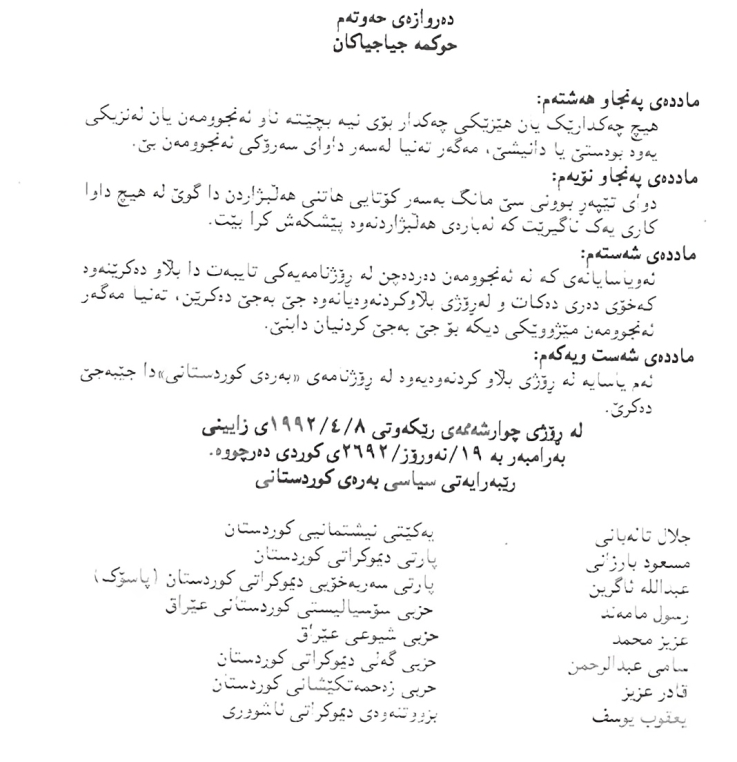 دەروازەی حەوتەم
حوکمە جیاجیاکان
ماددەی پەنجاو هەشتەم:
هیچ چەکدارێک یان هێزێکی چەکدار بۆی نیە بچێتە ناو ئەنجوومەن یان لەنزیکی
یەوە بوەستێ یا دانیشێ، مەگەر تەنیا لەسەر داوای سەرۆکی ئەنجوومەن بێ.
ماددەی پەنجاو نۆیەم:
دوای تێپەڕ بوونی سێ مانگ بەسەر کۆتایی هاتنی هەڵبژاردن دا گوێ لە هیچ داوا
کاری یەک ناگیرێت کە لەبارەی هەڵبژاردنەوە پێشکەش کرا بێت.
ماددەی شەستەم:
ئەویاسایانەی کە لە ئەنجوومەن دەردەچن لە ڕۆژنامەیەکی تایبەت دا بڵاو دەکرێنەوە
کەخۆی دەری دەکات و لەڕۆژی بڵاوکردنەوەیانەوە جێ بەجێ دەکرێن، تەنیا مەگەر
ئەنجوومەن مێژوویێکی دیکە بۆ جێ بەجێ کردنیان دابنێ.
ماددەی شەست ویەکەم:
ئەم یاسایە لە ڕۆژی بڵاو کردنەوەیەوە لە ڕۆژنامەی «بەرەی کوردستانی»دا جێبەجێ
دەکرێ.
لە ڕۆژی چوارشەممەی رێکەوتی ١٩٩٢/٤/٨ی زایینی
بەرامبەر بە ١٩/نەورۆز/٢٦٩٢ی کوردی دەرچووە.
رێبەرایەتی سیاسی بەرەی کوردستانی
جلال تاڵەبانی یەکێتی نیشتمانیی کوردستان
مسعود بارزانی پارتی دیموکراتی کوردستان
عبدالله ئاگرین پارتی سەربەخۆیی دیموکراتی کوردستان (پاسۆک)
رسول مامەند حزبی سۆسیالیستی کوردستانی عێراق
عزیز محمد حزبی شیوعی عێراق
سامی عبدالرحمن حزبی گەلی دیموکراتی کوردستان
قادر عزیز حزبی زەحمەتکێشانی کوردستان
یعقوب یوسف بزووتنەوەی دیموکراتی ئاشووری